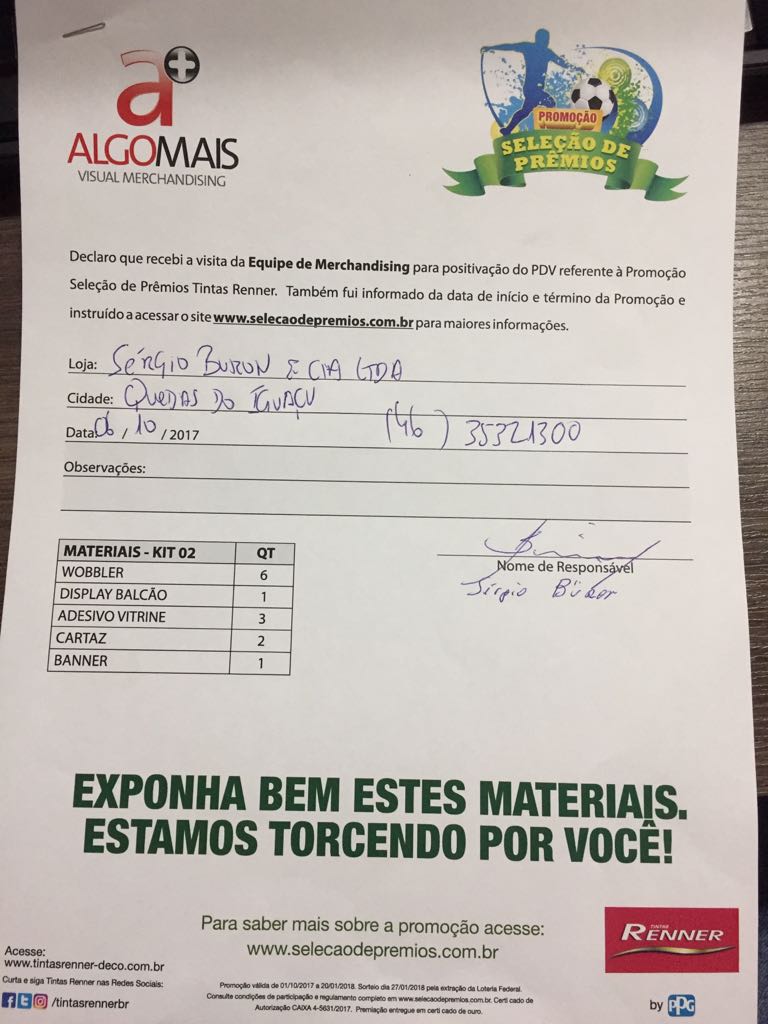 a+
ALGOMAIS
VISUAL MERCHANDISING
PROMOÇÃO
SELEÇÃO DE
PRÊMIOS
Declaro que recebi a visita da Equipe de Merchandising para positivação do PDV referente à Promoção
Seleção de Prêmios Tintas Renner. Também fui informado da data de início e término da Promoção e
instruído a acessar o site www.selecaodepremios.com.br para maiores informações.
Loja: SÉRGIO BURON E CIA LTDA
Cidade: QUEDAS DO IGUAÇU
Data: 06 / 10 / 2017 (46) 35321300
Observações:
MATERIAIS - KIT 02 QT
WOBBLER 6
DISPLAY BALCÃO 1
ADESIVO VITRINE 3
CARTAZ 2
BANNER 1
Nome de Responsável
Sérgio
EXPONHA BEM ESTES MATERIAIS.
ESTAMOS TORCENDO POR VOCÊ!
Para saber mais sobre a promoção acesse:
www.selecaodepremios.com.br
TINTAS
RENNER
by PPG
Acesse:
www.tintasrenner-deco.com.br
Curta e siga Tintas Renner nas Redes Sociais:
/tintasrennerbr
Promoção válida de 01/10/2017 a 20/01/2018. Sorteio dia 27/01/2018 pela extração da Loteria Federal.
Consulte condições de participação e regulamento completo em www.selecaodepremios.com.br. Certi cado de
Autorização CAIXA 4-5631/2017. Premiação entregue em certi cado de ouro.